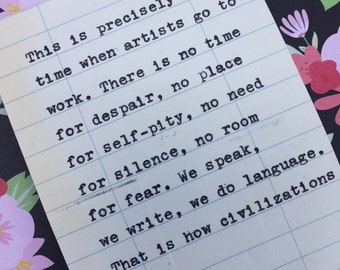 This is precisely
time when artists go to
work. There is no time
for despair, no place
for self-pity, no need
for silence, no room
for fear. We speak,
we write, we do language.
That is how civilizations